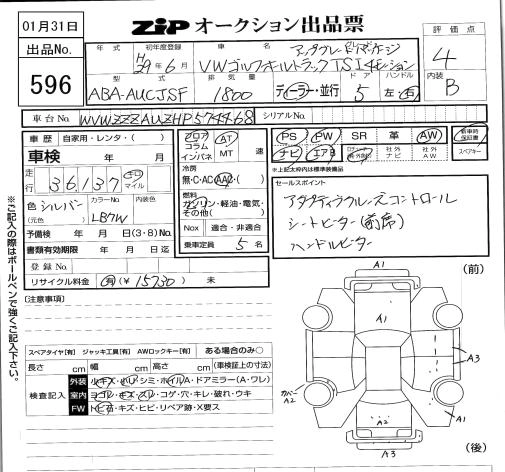 01月31日
出品No.
596
ZiPオークション出品票
評価点
4
内装
B
年式
初年度登録
H29年6月
車名
VWゴルフオールトラックTSI 4モーション
型式
ABA-AUCJSF
排気量
1800
ディーラー・並行
ドア
5
ハンドル
左・右
車台No.
WVWZZZAUZHP574468
シリアルNo.
車歴
自家用・レンタ・( )
車検 年 月
走行
36,137
キロ
マイル
色
(元色)
シルバー
カラーNo.
LB7W
内装色
予備検 年 月 日(3・8)
書類有効期限 年 月 日迄
登録No.
リサイクル料金
有(¥15730) 未
フロア
コラム
インパネ
AT
MT
速
冷房
無・C・AC・AAC・( )
燃料
ガソリン・軽油・電気・
その他( )
Nox 適合・非適合
乗車定員 5名
PS PW SR 革 AW
ナビ エアB 社外ナビ 社外AW
新車時保証書
スペアキー
※上記太枠内は標準装備品
セールスポイント
アダプティブクルーズコントロール
シートヒーター(前席)
ハンドルヒーター
[注意事項]
スペアタイヤ[有] ジャッキ工具[有] AWロックキー[有] ある場合のみ○
長さ cm 幅 cm 高さ cm (車検証上の寸法)
検査記入
外装 小キズ・小ハリ・シミ・ホイルA・ドアミラー(A・ワレ)
室内 ヨゴレ・キズ・スレ・コゲ・穴・キレ・破れ・ウキ
FW トビ石・キズ・ヒビ・リペア跡・X要ス
※ご記入の際はボールペンで強くご記入下さい。
(前)
A1
A1
A3
カバー
A2
A2
A1
A3
(後)